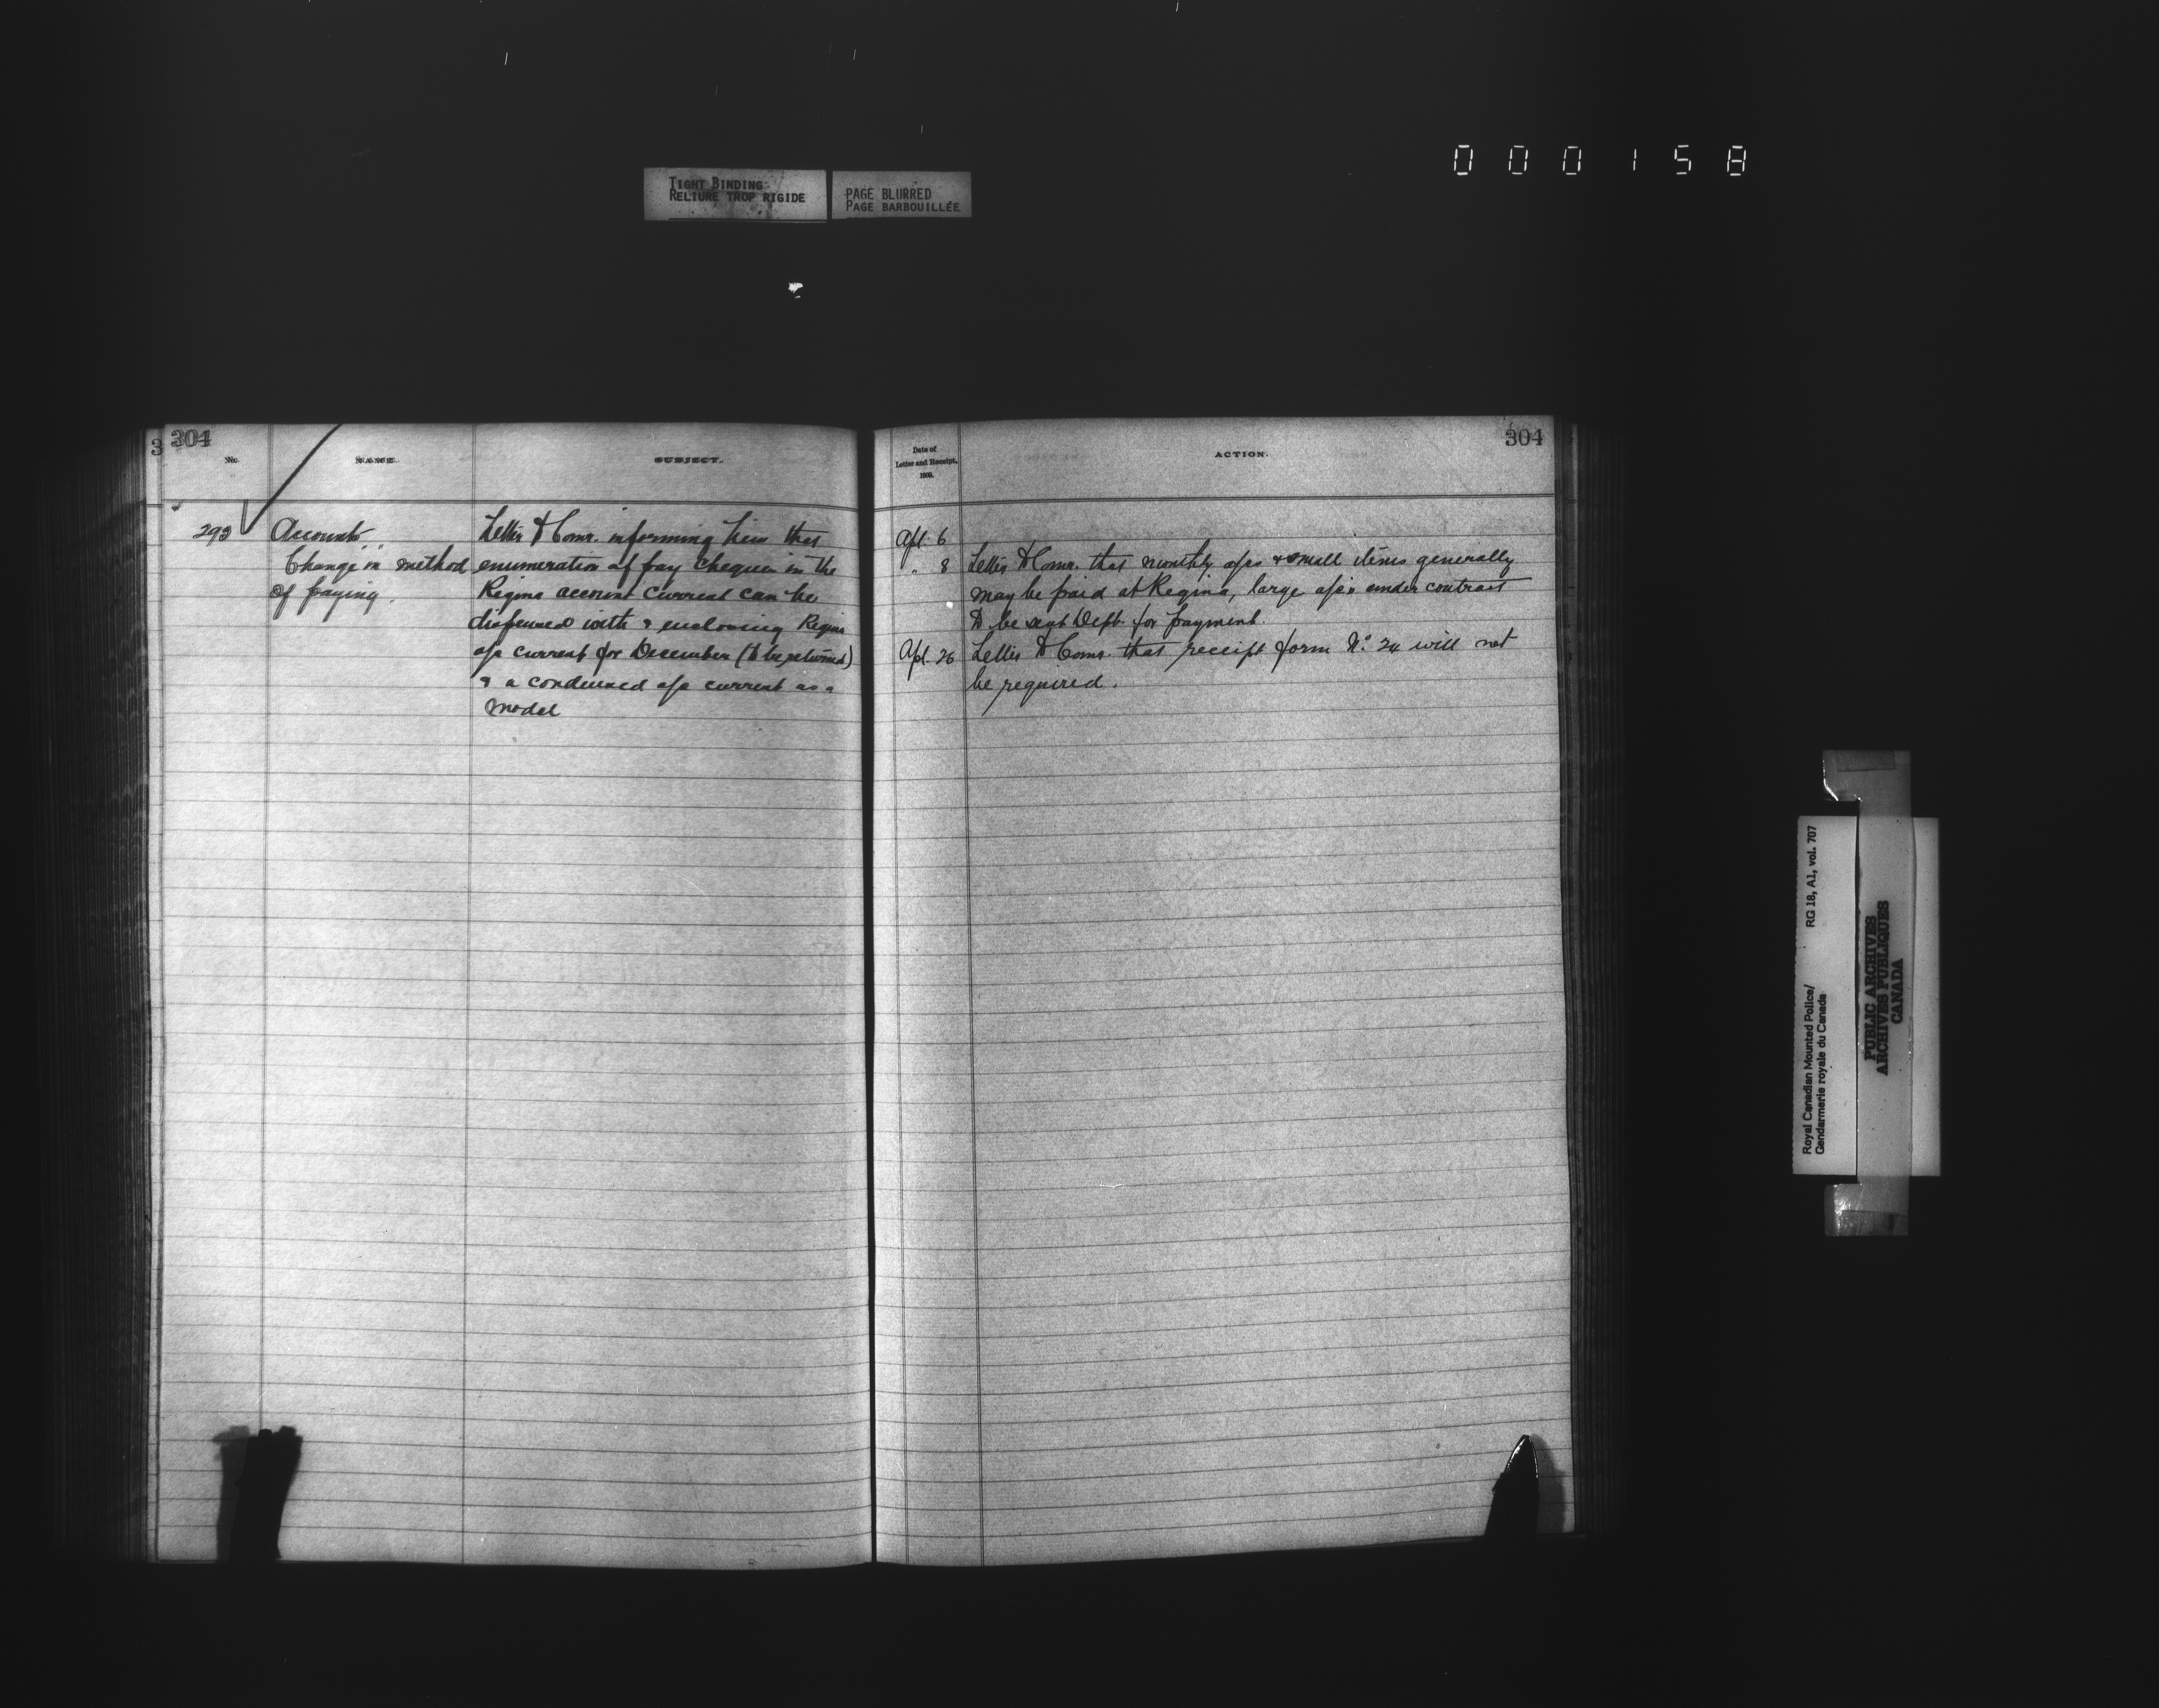 000158
TIGHT BINDING
RELIURE TROP RIGIDE
PAGE BLURRED
PAGE BARBOUILLÉE
3
304
No.
NAME.
SUBJECT.
293
Accounts
Change in method
of paying.
Letter to Comr. informing him that
enumeration of pay cheques in the
Regina account current can be
dispensed with & enclosing Regina
a/c current for December (to be returned)
& a condensed a/c current as a
model
304
Date of
Letter and Receipt,
ACTION.
Apl. 6
" 8 Letter to Comr. that monthly a/cs & small items generally
may be paid at Regina, large a/cs under contract
to be sent Dept. for payment.
Apl. 26 Letter to Comr. that receipt form No. 24 will not
be required.
Royal Canadian Mounted Police/
Gendarmerie royale du Canada
RG 18, A1, vol. 707
PUBLIC ARCHIVES
ARCHIVES PUBLIQUES
CANADA